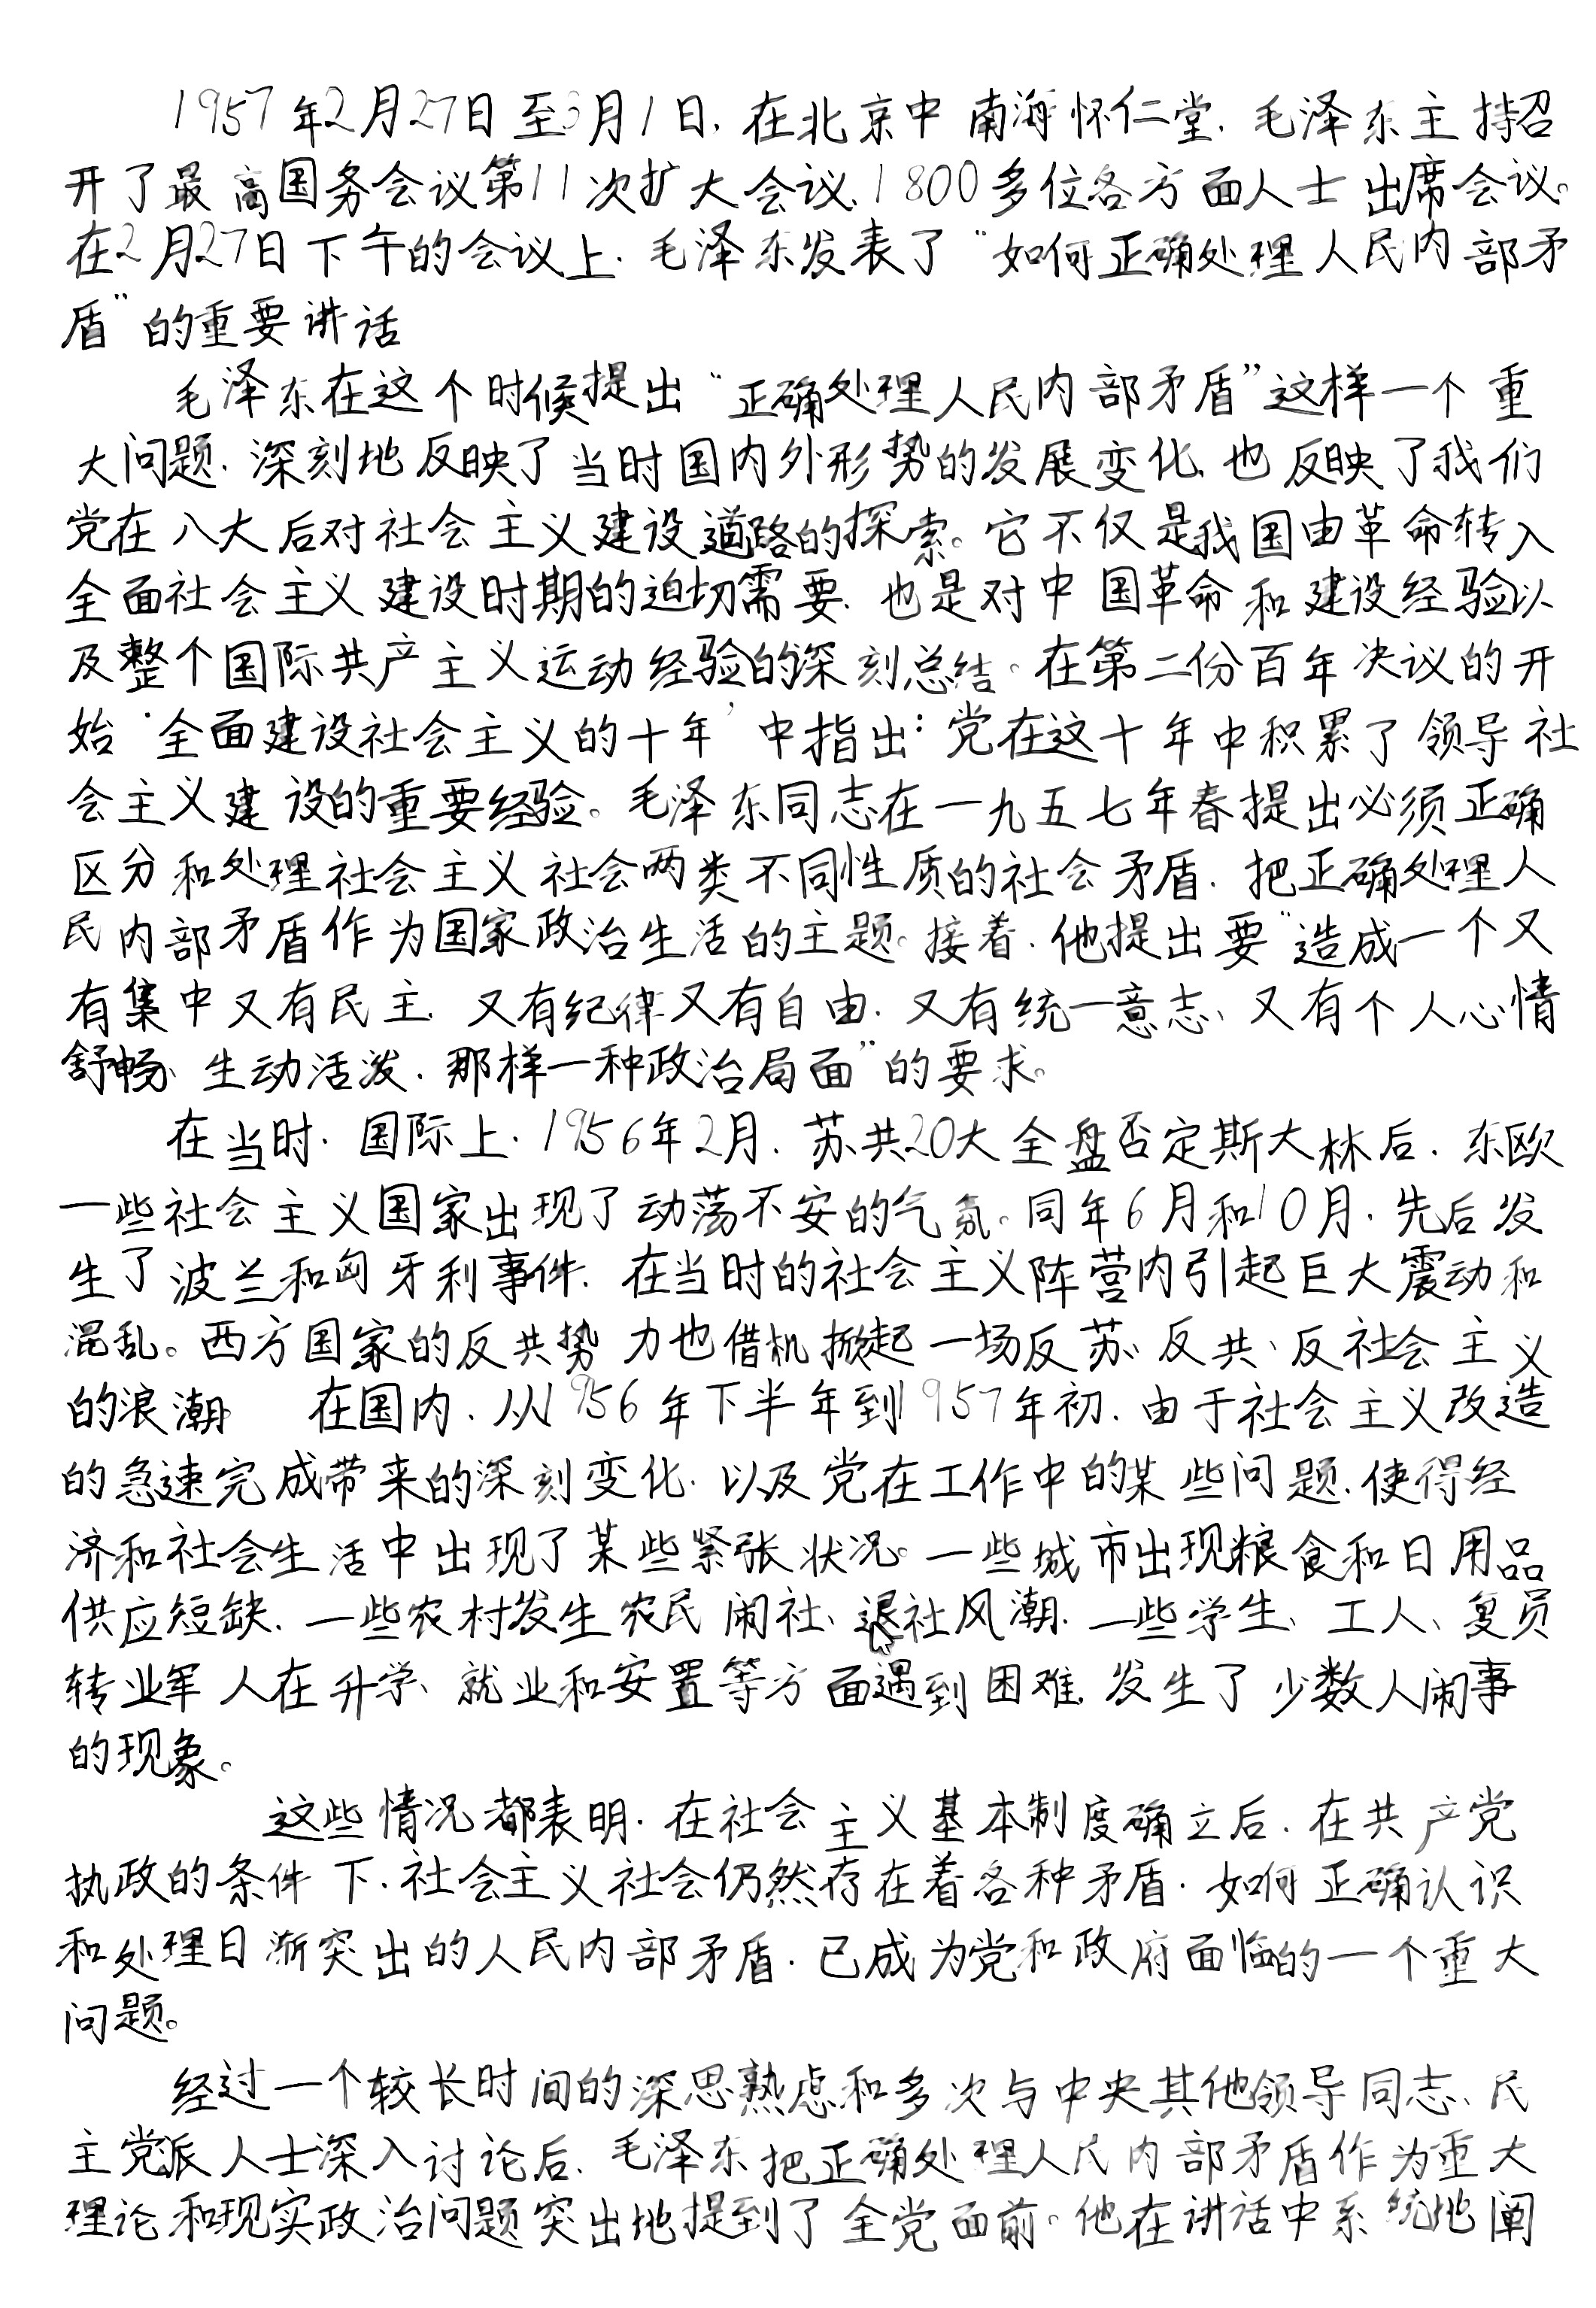 1957年2月27日至3月1日,在北京中南海怀仁堂,毛泽东主持召
开了最高国务会议第11次扩大会议,1800多位各方面人士出席会议。
在2月27日下午的会议上,毛泽东发表了“如何正确处理人民内部矛
盾”的重要讲话
毛泽东在这个时候提出“正确处理人民内部矛盾”这样一个重
大问题,深刻地反映了当时国内外形势的发展变化,也反映了我们
党在八大后对社会主义建设道路的探索。它不仅是我国由革命转入
全面社会主义建设时期的迫切需要,也是对中国革命和建设经验以
及整个国际共产主义运动经验的深刻总结。在第二份百年决议的开
始‘全面建设社会主义的十年’中指出:党在这十年中积累了领导社
会主义建设的重要经验。毛泽东同志在一九五七年春提出必须正确
区分和处理社会主义社会两类不同性质的社会矛盾,把正确处理人
民内部矛盾作为国家政治生活的主题。接着,他提出要“造成一个又
有集中又有民主,又有纪律又有自由,又有统一意志、又有个人心情
舒畅、生动活泼,那样一种政治局面”的要求。
在当时,国际上,1956年2月,苏共20大全盘否定斯大林后,东欧
一些社会主义国家出现了动荡不安的气氛。同年6月和10月,先后发
生了波兰和匈牙利事件,在当时的社会主义阵营内引起巨大震动和
混乱。西方国家的反共势力也借机掀起一场反苏、反共、反社会主义
的浪潮 在国内,从1956年下半年到1957年初,由于社会主义改造
的急速完成带来的深刻变化,以及党在工作中的某些问题,使得经
济和社会生活中出现了某些紧张状况。一些城市出现粮食和日用品
供应短缺,一些农村发生农民闹社、退社风潮,一些学生、工人、复员
转业军人在升学、就业和安置等方面遇到困难,发生了少数人闹事
的现象。
这些情况都表明,在社会主义基本制度确立后,在共产党
执政的条件下,社会主义社会仍然存在着各种矛盾,如何正确认识
和处理日渐突出的人民内部矛盾,已成为党和政府面临的一个重大
问题。
经过一个较长时间的深思熟虑和多次与中央其他领导同志、民
主党派人士深入讨论后,毛泽东把正确处理人民内部矛盾作为重大
理论和现实政治问题突出地提到了全党面前。他在讲话中系统地阐